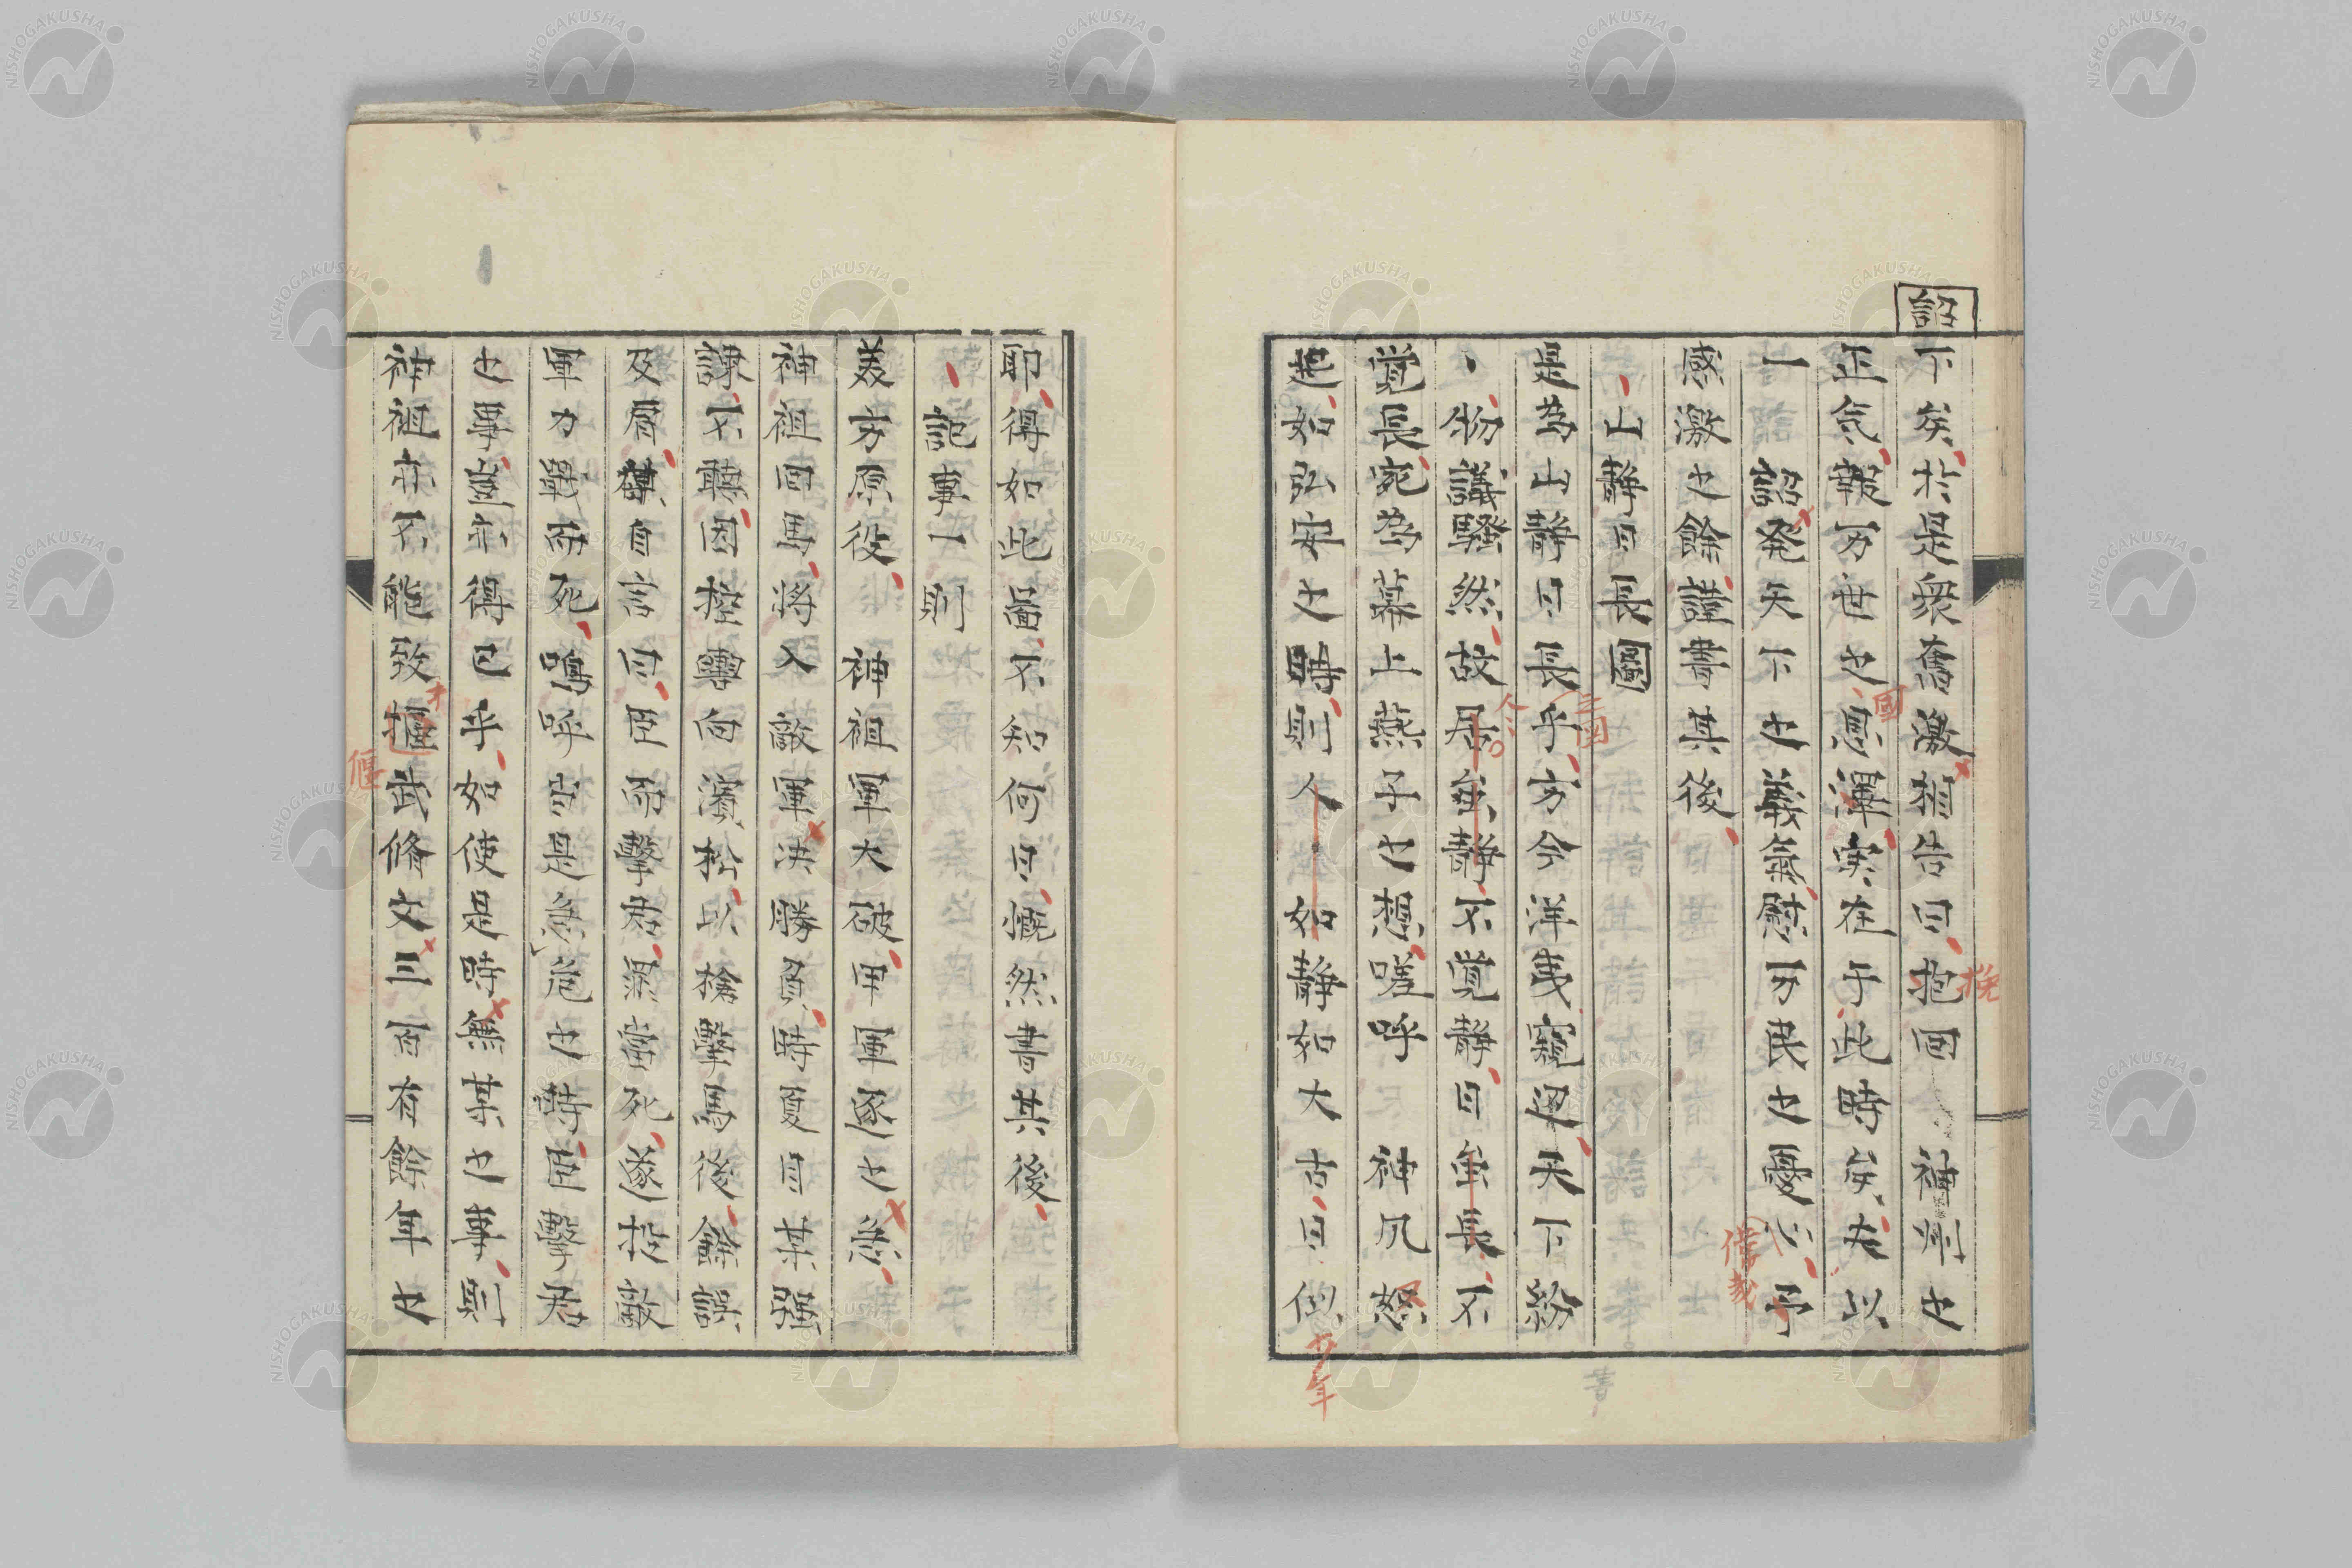 詔
下矣於是衆奮激相告曰抱国 神州之
挽
正気報万世之恩澤実在于此時矣夫以
國
一 詔発天下之義氣慰万民之憂心予
感激之餘謹書其後
山静日長圖
是為山静日長乎方今洋夷窺邊天下紛
物議騒然故居無静不覚静日無長不
覚長宛為幕上燕子之想嗟呼 神风怒
起如弘安之時則人 如静如大古日似
少年
耶得如此圖不知何日慨然書其後
記事一則
美方原役 神祖軍大破甲軍逐之急
神祖回馬将入 敵軍決勝負時夏目某強
諌不聴因控轡向濱松以槍擊馬後餘誤
及唇某自言曰臣而擊君罪當死遂投敵
軍力戰而死嗚呼当是急危之時臣擊君
之事豈亦得已乎如使是時無某之事則
神祖亦不能致擢武脩文三百有餘年之
偃